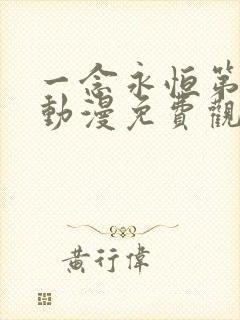 一念永恒第
動漫免費觀
黃行偉